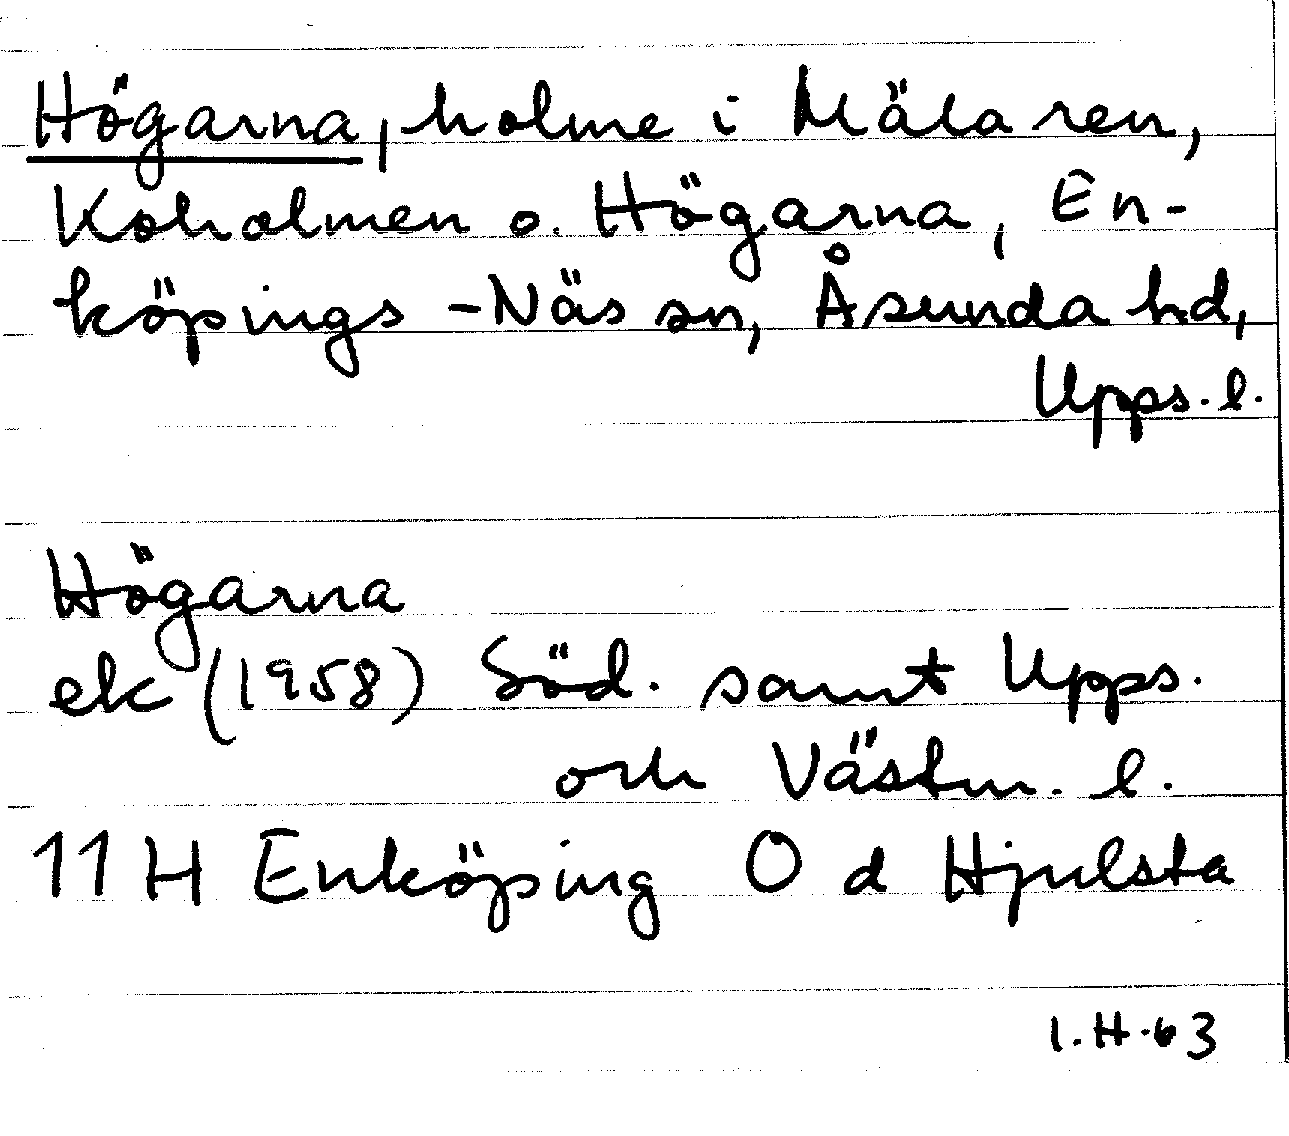 Högarna, holme i Mälaren,
Koholmen o. Högarna, En-
köpings-Näs sn, Åsunda hd,
Upps. l.
Högarna
ek (1958) Söd. samt Upps.
och Västm. l.
11 H Enköping O d Hjulsta
I.H-63